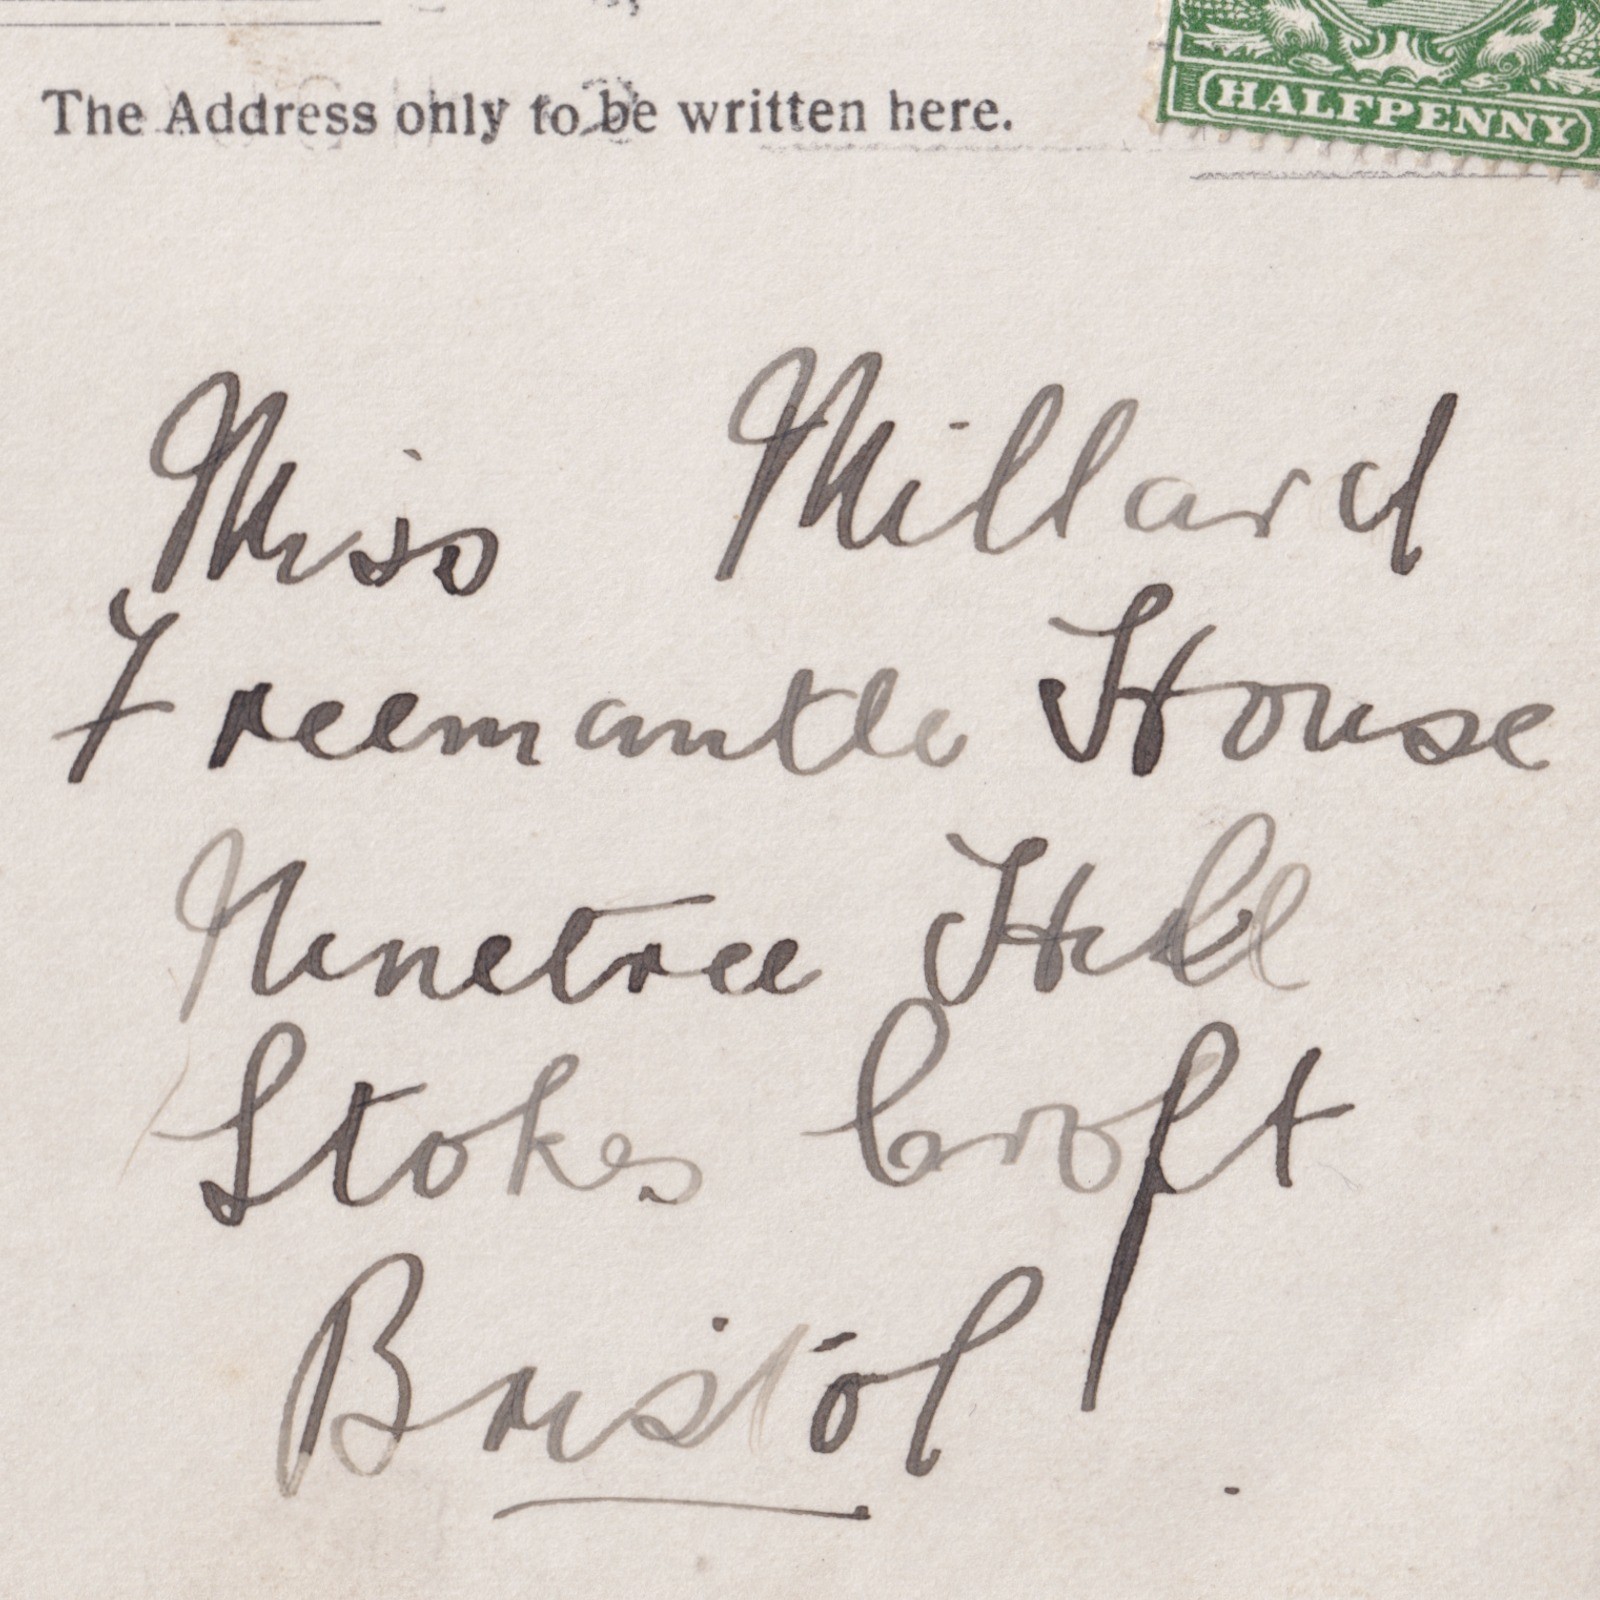 The Address only to be written here.
HALFPENNY
Miss Millard
Freemantle House
Ninetree Hill
Stokes Croft
Bristol